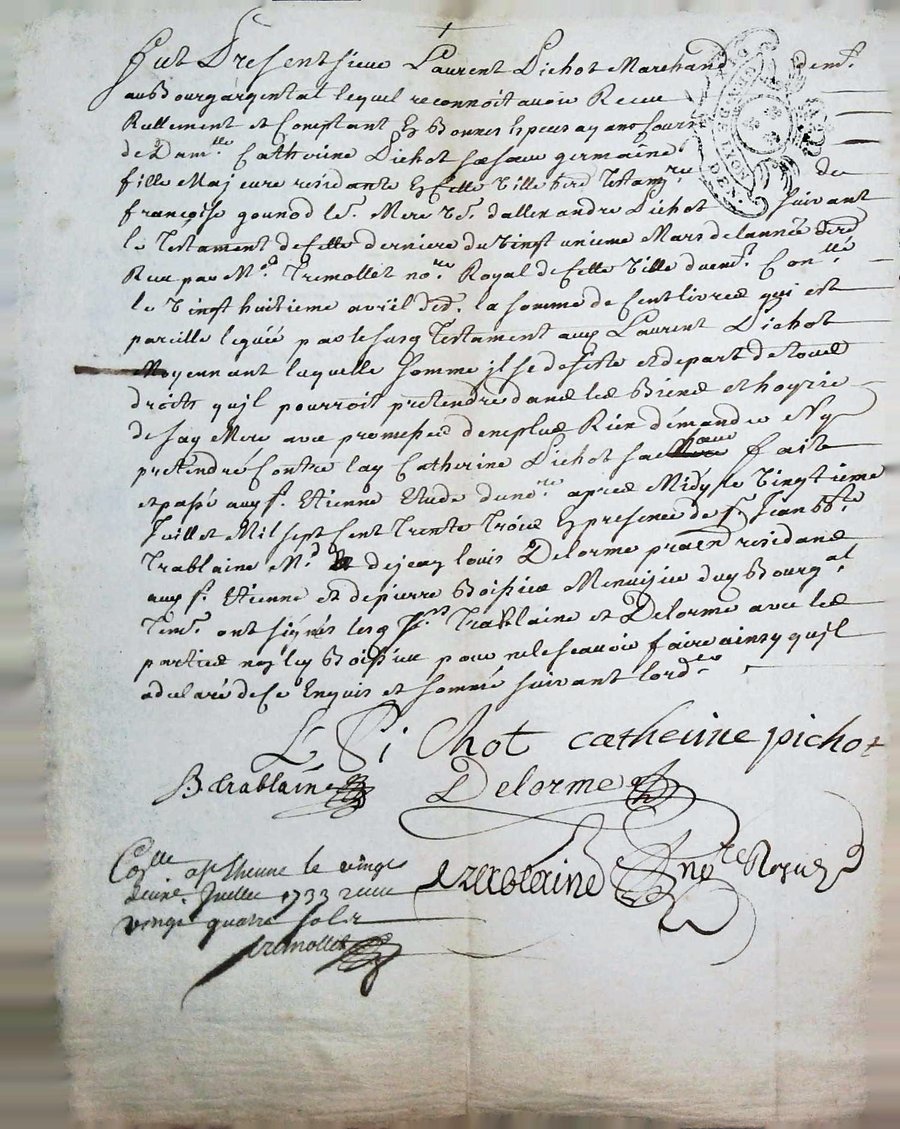 fut Present sieur Laurent Pichot Marchand dem.t
au Bourgargental lequel reconnoit avoir Receu
Reellement et Comptant En Bonnes Especes ayant Cours
de Dam.lle Catherine Pichot sa soeur germaine
fille Majeure residante En cette Ville de
françoise gounod Mere V.e d'allexandre Pichot suivant
le Testament de cette derniere du Vingt unieme Mars de l'année
Receu par M.e Tremollet no.re Royal de cette Ville Con.llé
le Vingt huitieme avril la somme de Cent livres qui est
pareille leguée par le susd Testament aud Laurent Pichot
Moyennant laquelle somme il se desiste et depart de tous
droits qu'il pourroit pretendre dans les Biens et hoyrie
de sad Mere avec promesse de ne plus Rien demander Ny
pretendre Contre lad Catherine Pichot sa soeur fait
et passé aud S.t Etienne Etude du no.re apres Midy le Vingtieme
Juillet Mil sept Cent Trente Trois En presence de S.r Jean B.te
Trablaine M.d de Jean louis Delorme pratn residans
aud S.t Etienne et de pierre Boissieu Menuisier dud Bourg al
Tem. ont signés lesd S.rs Trablaine et Delorme avec les
parties non led Boissieu pour ne le scavoir faire ainsy qu'il
a declaré de ce Enquis et sommé suivant l'ord.ce
L Pichot catherine pichot
B trablaine Delorme
Trablaine no.re Royal
Co.llé a St Etienne le vingt
Juillet 1733 receu
vingt quatre sols
tremollet
GN. DE LION
DEN.